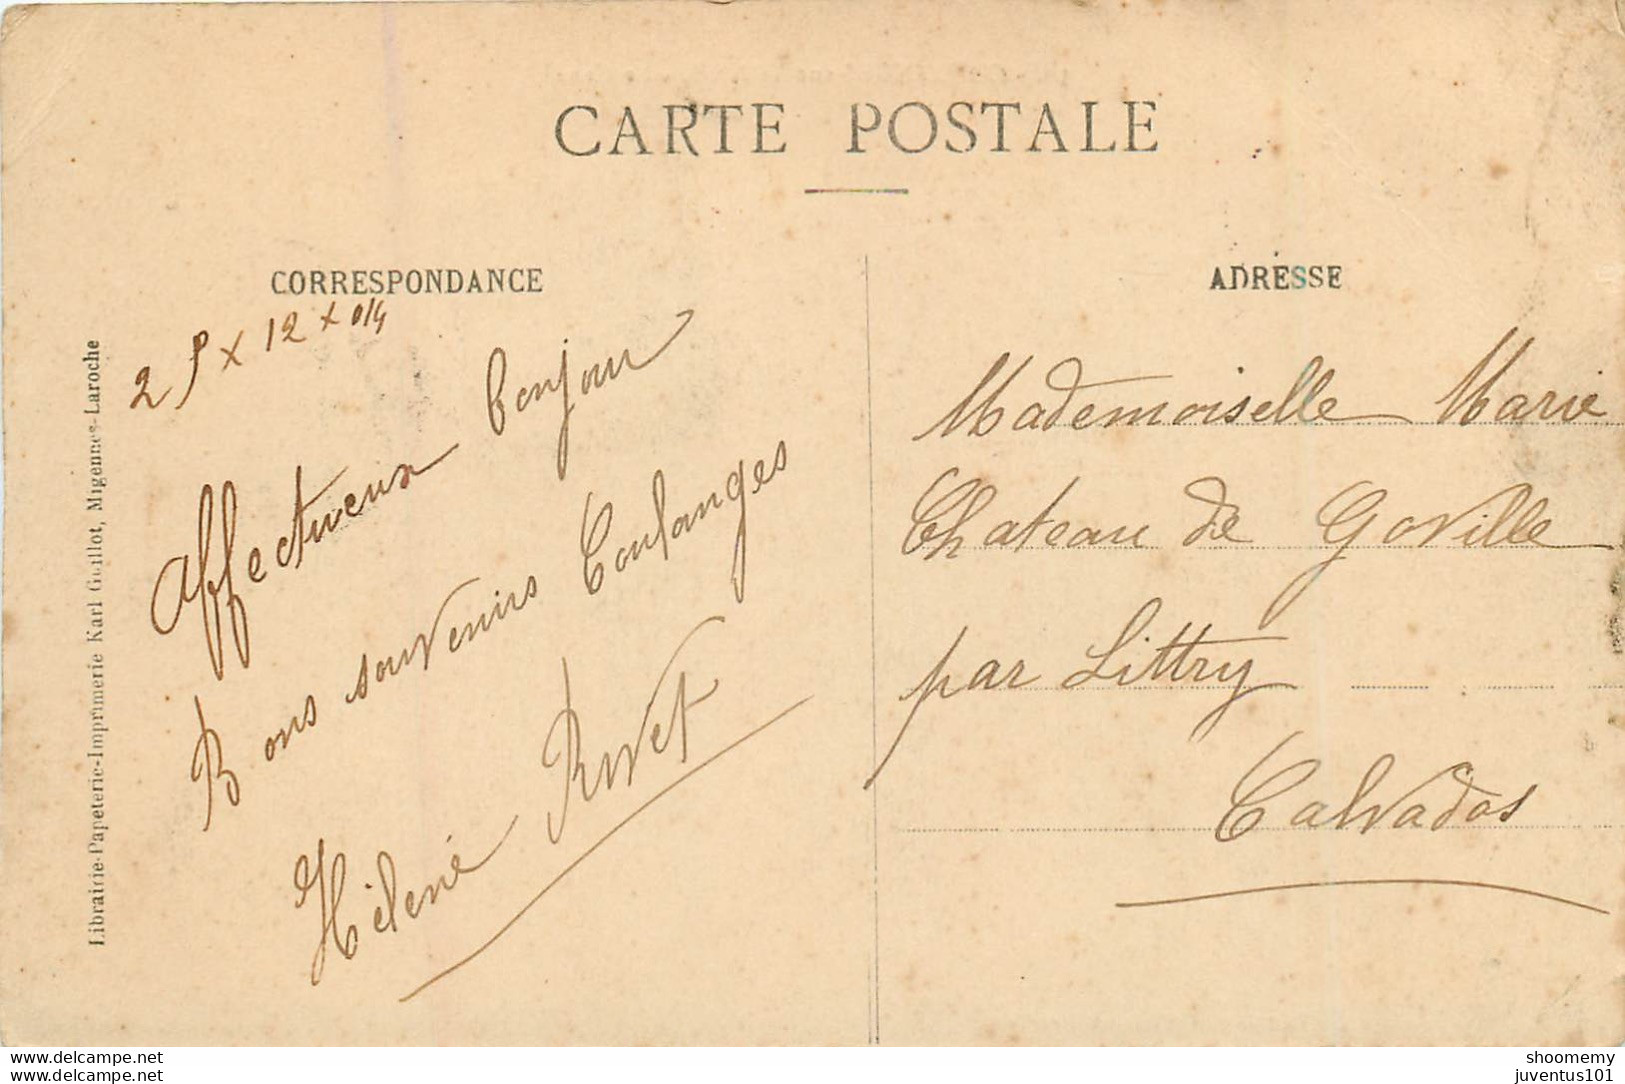 CARTE POSTALE
CORRESPONDANCE
25 x 12 x 014
Affectueux bonjour
Bons souvenirs Coulanges
Hélène Rivet
Librairie-Papeterie-Imprimerie Karl Guillot, Migennes-Laroche
ADRESSE
Mademoiselle Marie
Chateau de Goville
par Littry
Calvados
www.delcampe.net
www.delcampe.net
shoomemy
juventus101